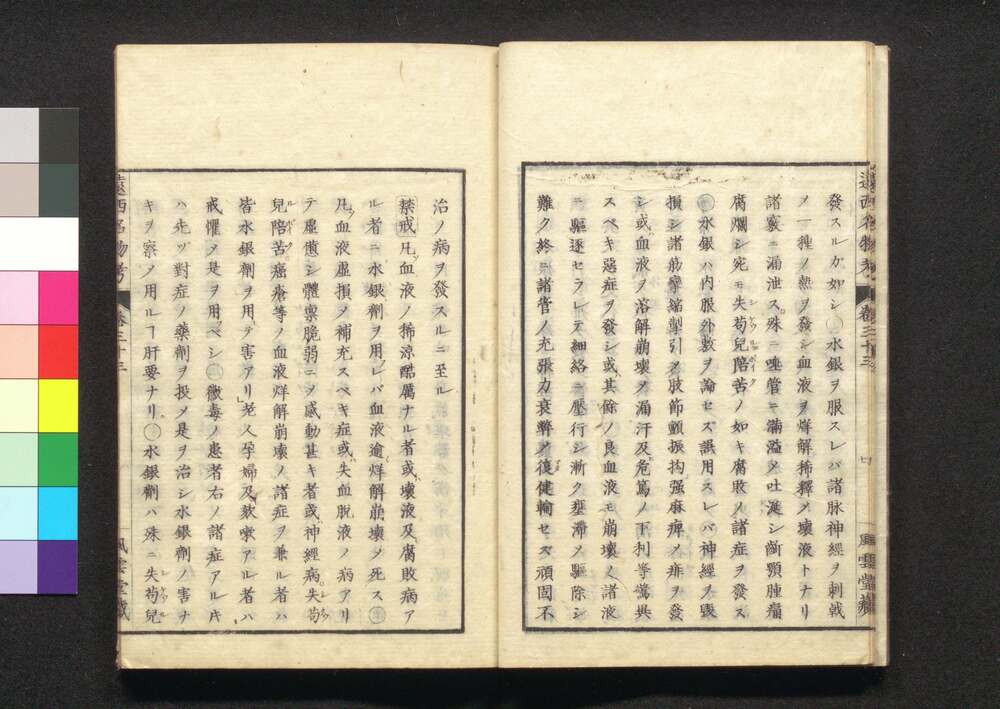 遠西名物考 卷三十三
發スルカ如シ○水銀ヲ服スレバ諸脉神經ヲ刺戟
メ一種ノ熱ヲ發シ血液ヲ烊解稀釋メ壞液トナリ
諸竅ニ漏泄ス殊ニ唾管ニ滿溢メ吐涎シ齗顎腫痛
腐爛シ宛モ失苟兒陪苦ノ如キ腐敗ノ諸症ヲ發ス
水銀ハ內服外敷ヲ論セス誤用スレバ神經ヲ毀
損シ諸筋攣縮掣引メ肢節顫振拘强麻痺ノ
シ或血液ヲ溶解崩壞メ漏汗及危篤ノ下利等驚
スベキ惡症ヲ發シ或其餘ノ良血液モ崩壞ノ諸液
ニ驅逐セラレテ細絡ニ壓行シ漸ク壅滯メ驅除シ
難ク終ニ諸管ノ充張力衰弊メ復健輸セス頑固不
風雲堂藏
治ノ病ヲ發スルニ至ル
禁戒凡血液ノ稀涼醎厲ナル者或壞液及腐敗病ア
ル者ニ水銀劑ヲ用レバ血液逾烊解崩壞メ死ス
凡血液虛損メ補充スベキ症或失血脫液ノ病アリ
テ虛憊シ體稟脆弱ニメ感動甚キ者或神經病失苟
兒陪苦癌瘡等ノ血液烊解崩壞ノ諸症ヲ兼ル者ハ
皆水銀劑ヲ用テ害アリ老人孕婦及欬嗽アル者ハ
戒懼メ是ヲ用ベシ 黴毒ノ患者右ノ諸症アル片
ハ先ヅ對症ノ藥劑ヲ投メ是ヲ治シ水銀劑ノ害ナ
キヲ察メ用ルヿ肝要ナリ○水銀劑ハ殊ニ失苟兒
遠西名物考 卷三十三
風雲堂藏